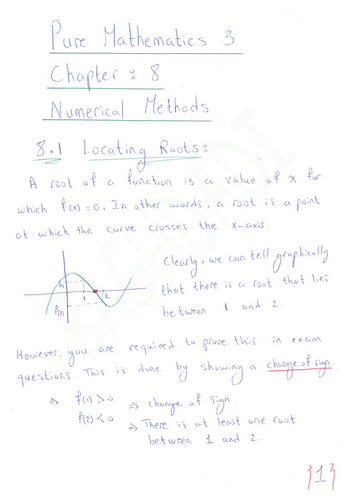 Pure Mathematics 3
Chapter : 8
Numerical Methods
8.1 Locating Roots:
A root of a function is a value of x for
which f(x)=0. In other words, a root is a point
at which the curve crosses the x-axis.
Clearly, we can tell graphically
that there is a root that lies
between 1 and 2.
1
2
However, you are required to prove this in exam
questions. This is done by showing a change of sign.
⇒ f(1) > 0 ⇒ change of sign.
f(2) < 0 ⇒ There is at least one root
between 1 and 2.
{1}